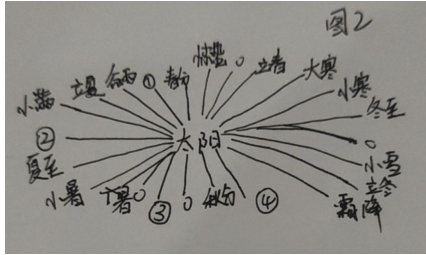 图2
小满
立夏
谷雨
①
春分
惊蛰
0
立春
大寒
小寒
冬至
②
太阳
0
夏至
小雪
小暑
大暑
0
③
0
秋分
④
立冬
霜降